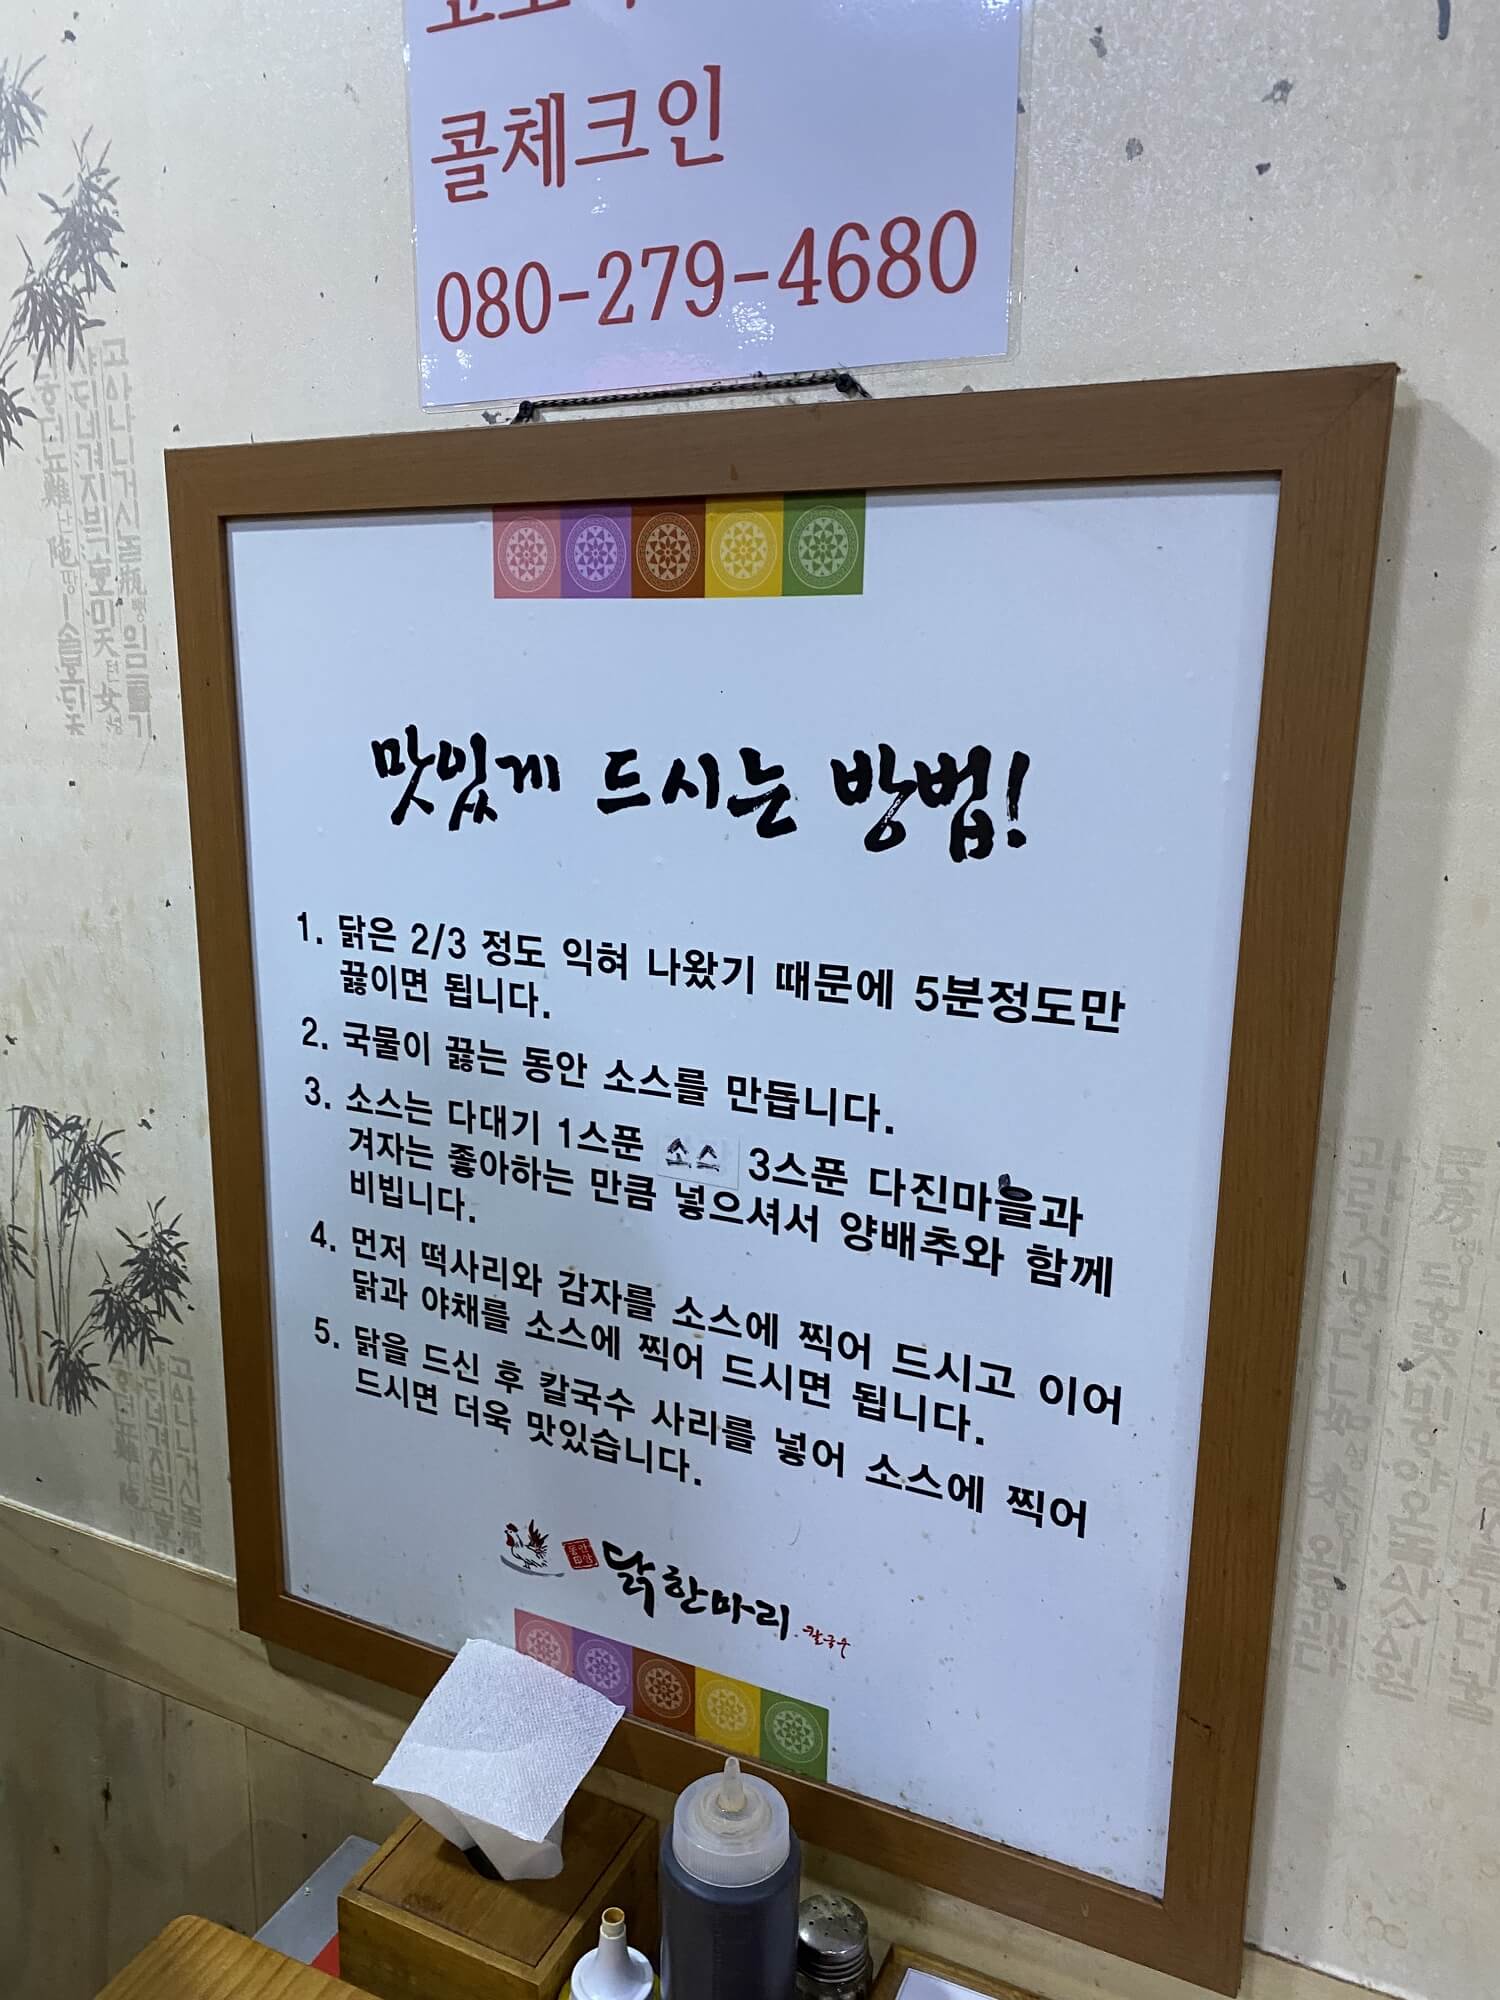 콜체크인
080-279-4680
맛있게 드시는 방법!
1. 닭은 2/3 정도 익혀 나왔기 때문에 5분정도만
끓이면 됩니다.
2. 국물이 끓는 동안 소스를 만듭니다.
3. 소스는 다대기 1스푼 소스 3스푼 다진마을과
겨자는 좋아하는 만큼 넣으셔서 양배추와 함께
비빕니다.
4. 먼저 떡사리와 감자를 소스에 찍어 드시고 이어
닭과 야채를 소스에 찍어 드시면 됩니다.
5. 닭을 드신 후 칼국수 사리를 넣어 소스에 찍어
드시면 더욱 맛있습니다.
닭한마리 칼국수